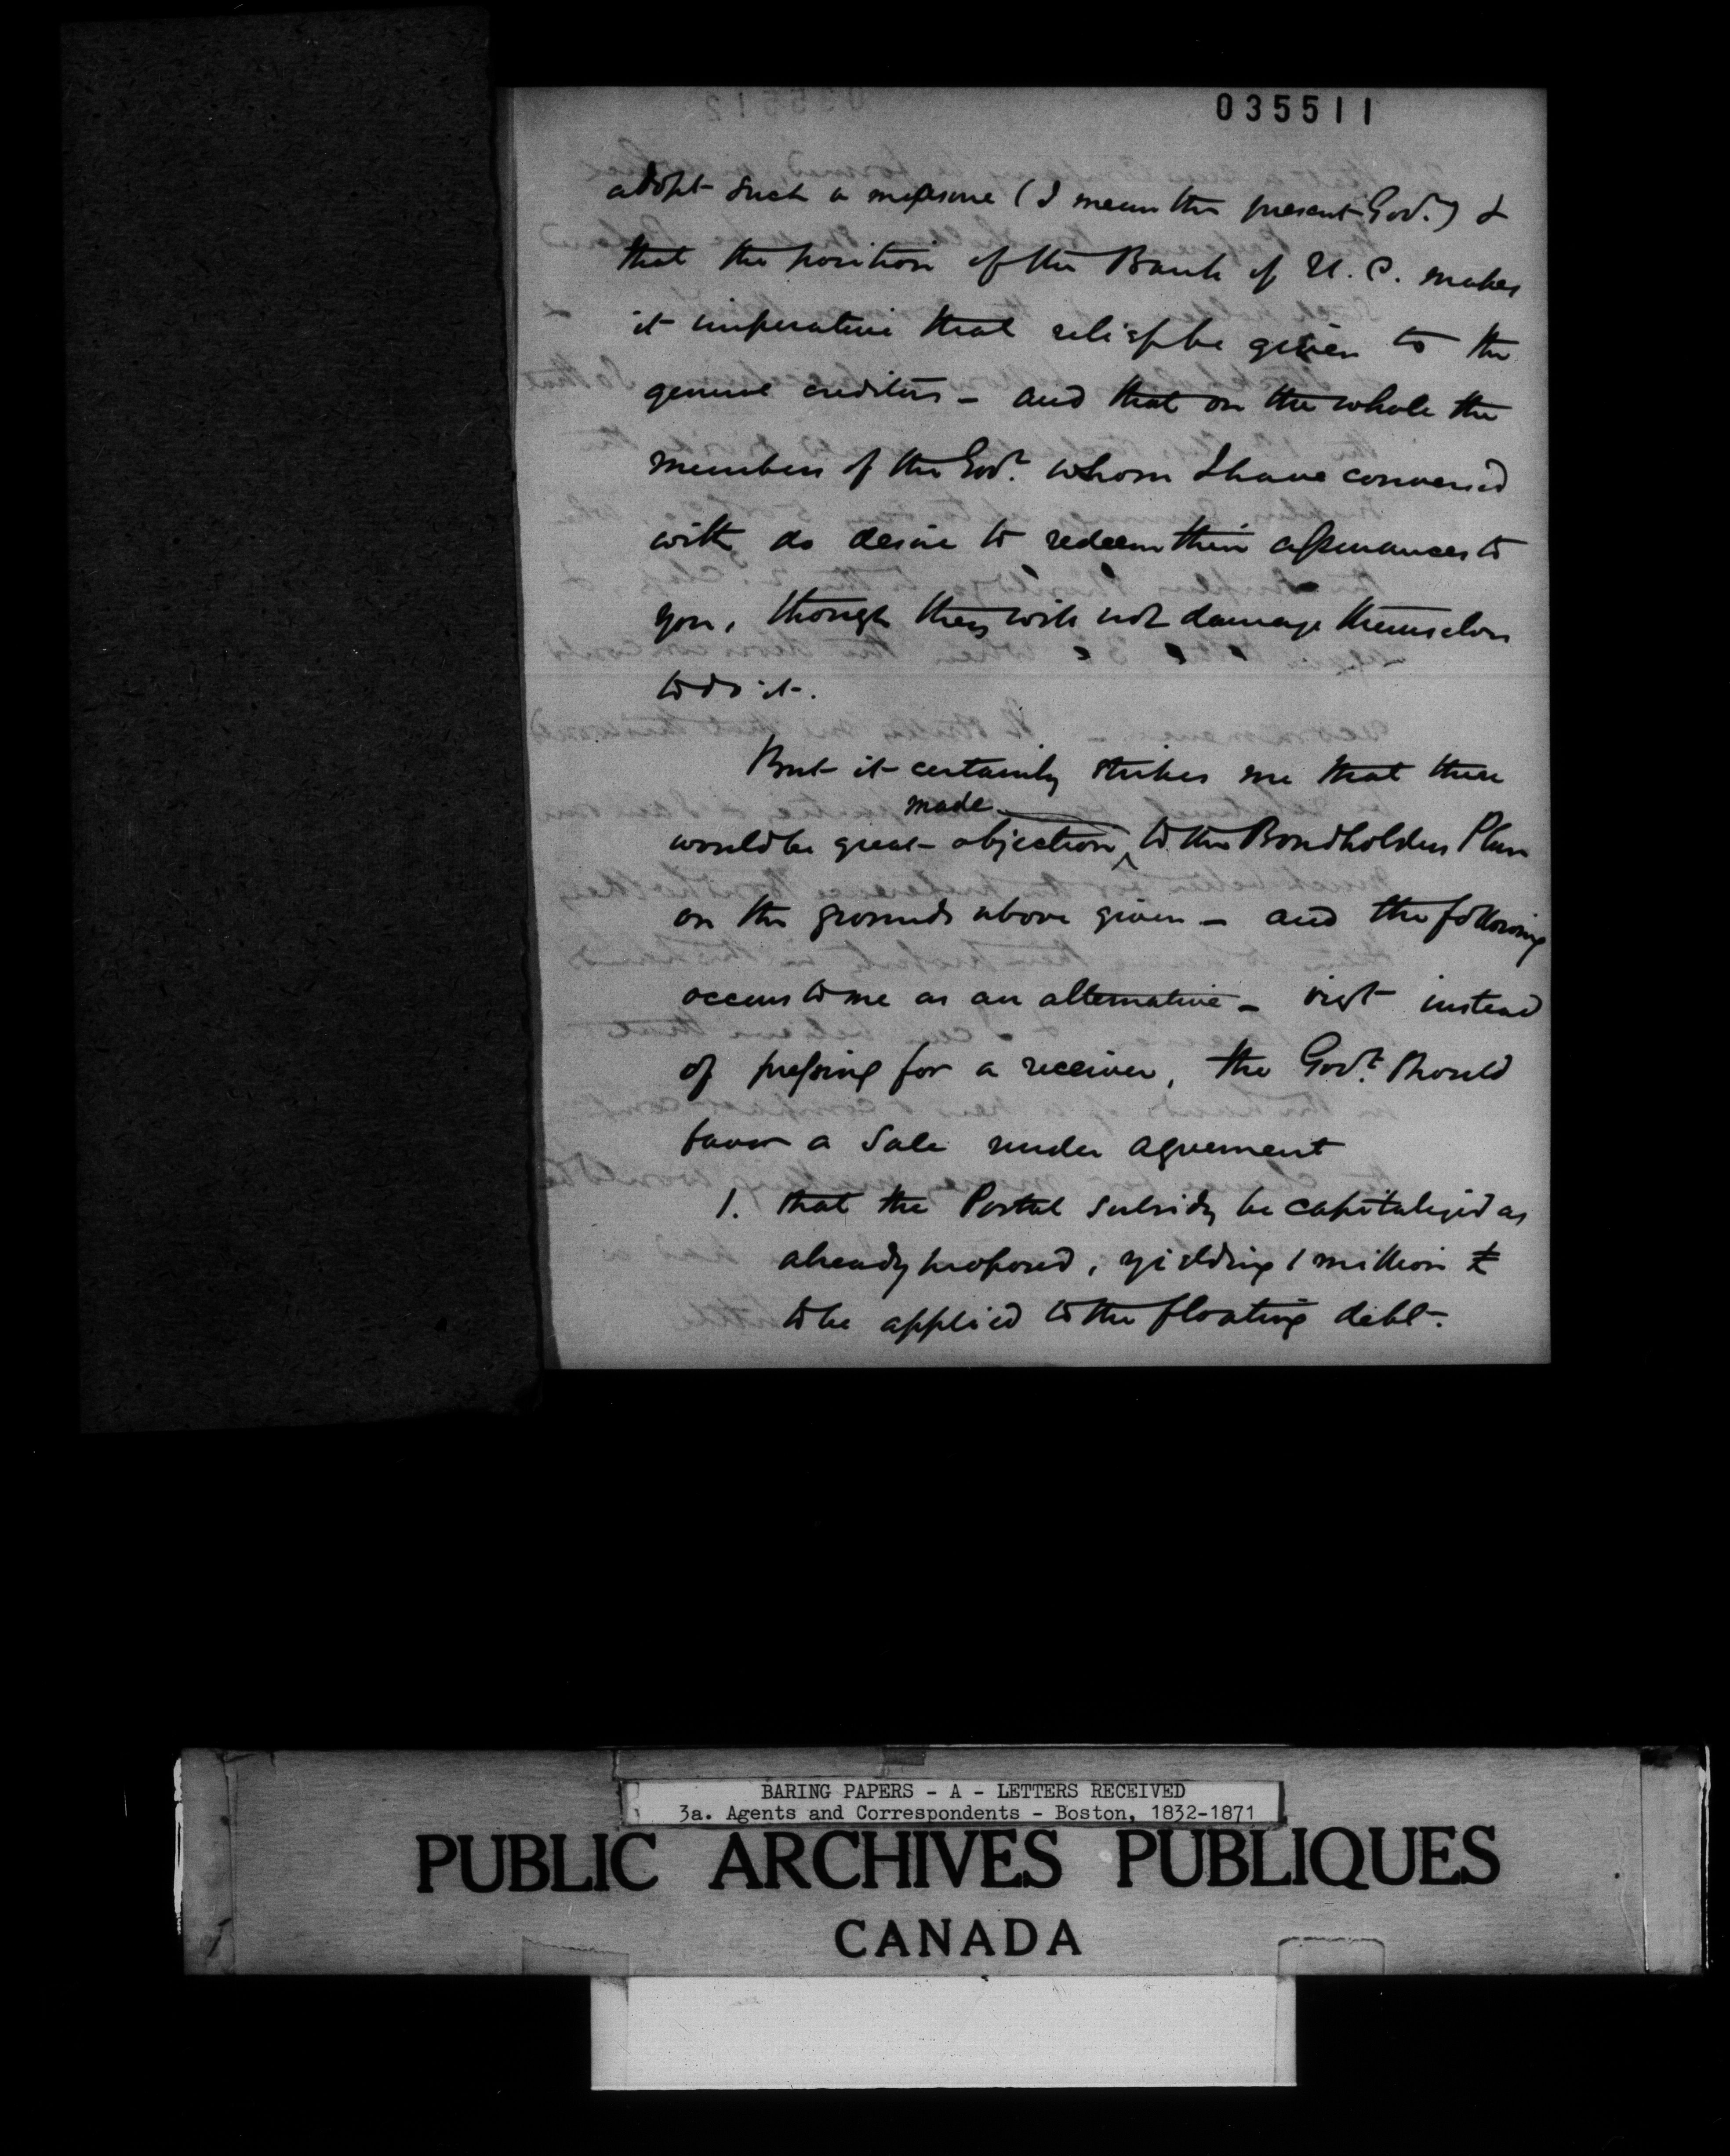 035511
adopt such a measure (I mean the present Govt.) &
that the position of the Bank of U. C. makes
it imperative that relief be given to the
general creditors – and that on the whole the
members of the Govt. whom I have conversed
with do desire to redeem their assurances to
you, though they will not damage themselves
to do it.
But it certainly strikes me that there
made
would be great objection to the Bondholders Plan
on the grounds above given – and the following
occurs to me as an alternative – vizt instead
of pressing for a receiver, the Govt. should
favor a sale under agreement
1. that the Postal subsidy be capitalized as
already proposed, yielding 1 million £
to be applied to the floating debt.
BARING PAPERS - A - LETTERS RECEIVED
3a. Agents and Correspondents - Boston, 1832-1871
PUBLIC ARCHIVES PUBLIQUES
CANADA